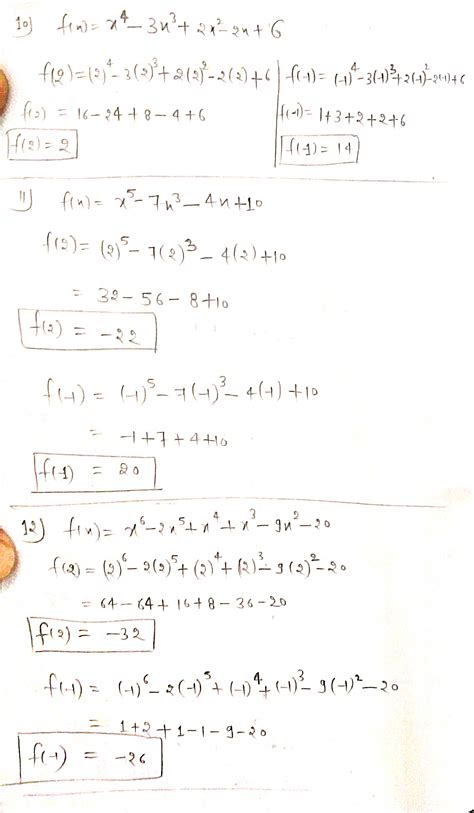 10) f(x) = x⁴ - 3x³ + 2x² - 2x + 6
f(2) = (2)⁴ - 3(2)³ + 2(2)² - 2(2) + 6 | f(-1) = (-1)⁴ - 3(-1)³ + 2(-1)² - 2(-1) + 6
f(2) = 16 - 24 + 8 - 4 + 6 | f(-1) = 1 + 3 + 2 + 2 + 6
f(2) = 2 | f(-1) = 14
11) f(x) = x⁵ - 7x³ - 4x + 10
f(2) = (2)⁵ - 7(2)³ - 4(2) + 10
= 32 - 56 - 8 + 10
f(2) = -22
f(-1) = (-1)⁵ - 7(-1)³ - 4(-1) + 10
= -1 + 7 + 4 + 10
f(-1) = 20
12) f(x) = x⁶ - 2x⁵ + x⁴ + x³ - 9x² - 20
f(2) = (2)⁶ - 2(2)⁵ + (2)⁴ + (2)³ - 9(2)² - 20
= 64 - 64 + 16 + 8 - 36 - 20
f(2) = -32
f(-1) = (-1)⁶ - 2(-1)⁵ + (-1)⁴ + (-1)³ - 9(-1)² - 20
= 1 + 2 + 1 - 1 - 9 - 20
f(-1) = -26